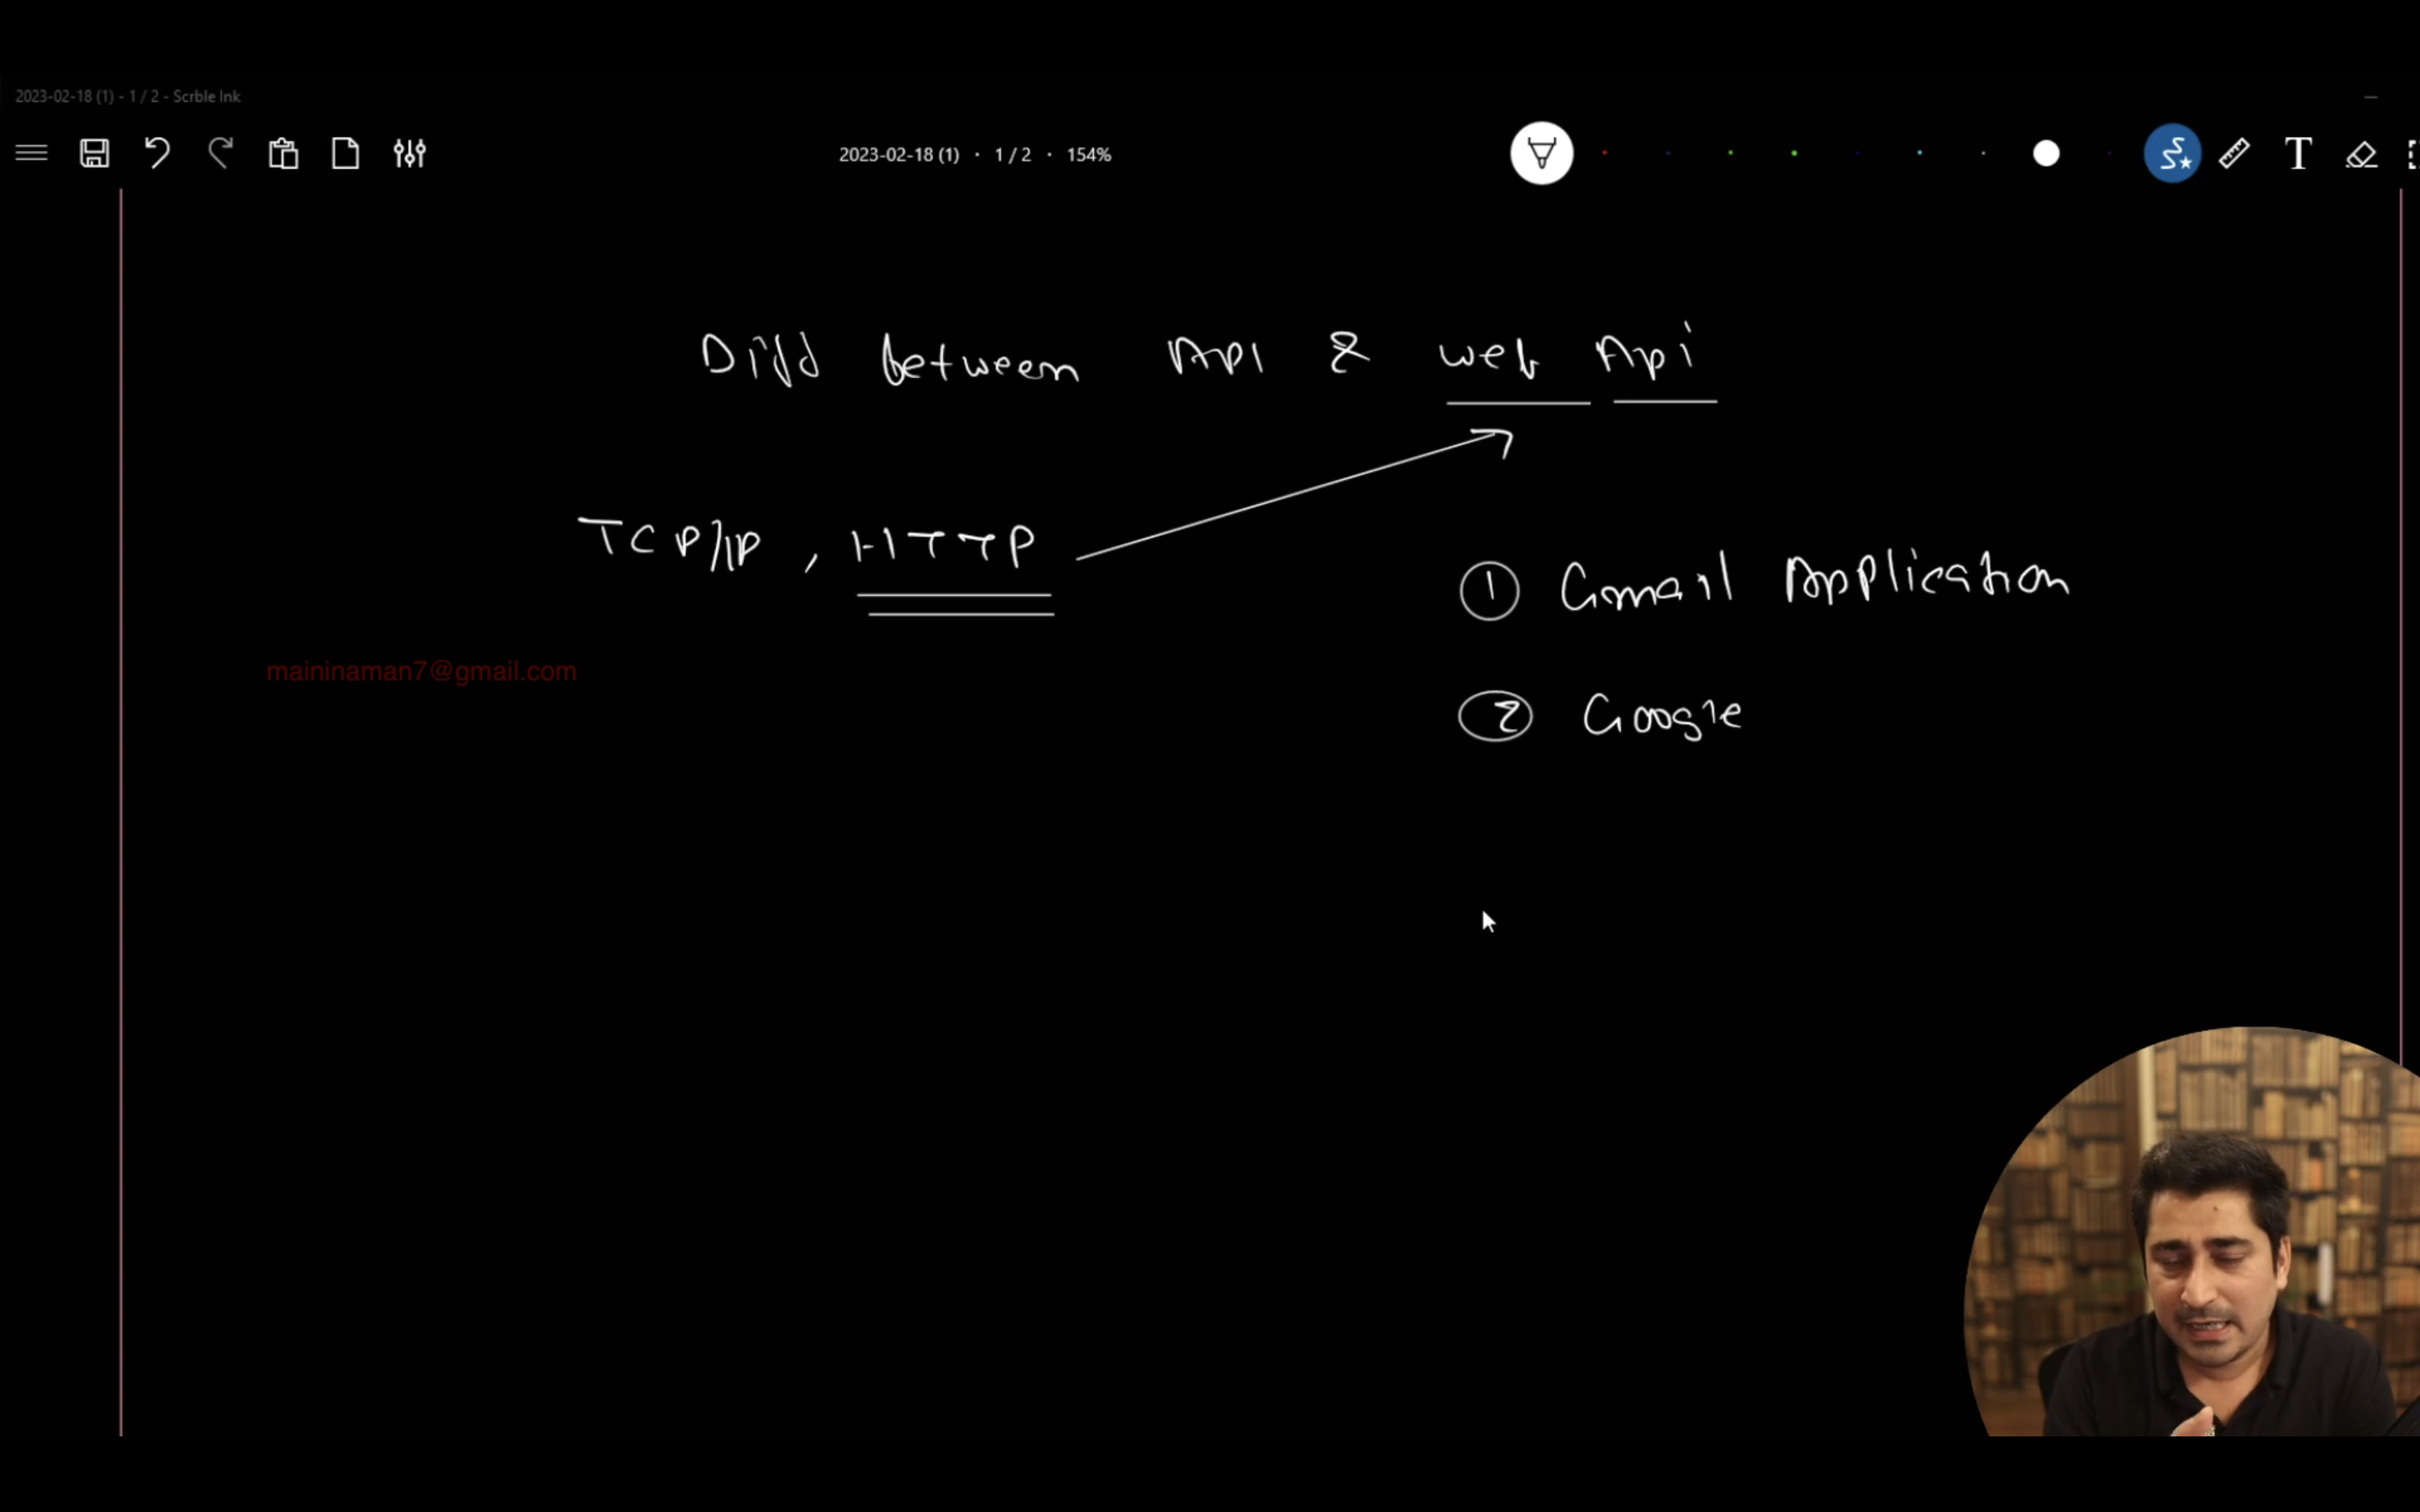 2023-02-18 (1) - 1 / 2 - Scrble Ink
2023-02-18 (1) · 1 / 2 · 154%
T
Diff between API & web Api
TCP/IP , HTTP
1 Gmail Application
maininaman7@gmail.com
2 Google